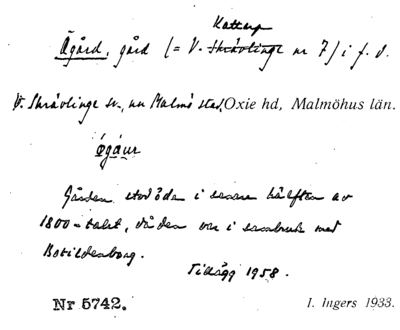 Kattarp
Ågård, gård (= V. Skrävlinge nr 7) i f. d.
V. Skrävlinge sn, nu Malmö stad, Oxie hd, Malmöhus län.
ǫ́gáur
Gården stod öde i senare hälften av
1800-talet, då den var i sambruk med
Botildenborg.
Tillägg 1958.
Nr 5742.
I. Ingers 1933.